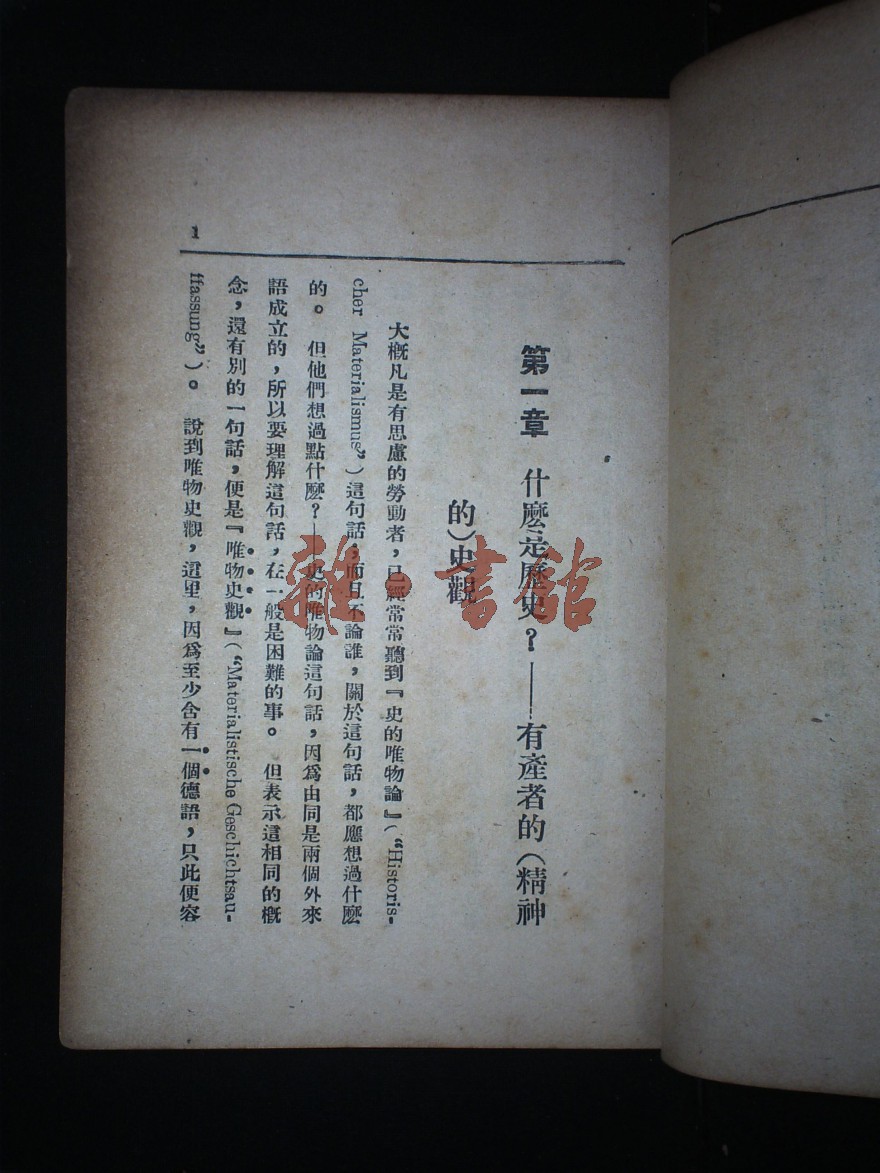 第一章　什麽是歷史？——有產者的（精神
的）史觀
大概凡是有思慮的勞動者，已經常常聽到『史的唯物論』（“Historis-
cher Materialismus”）這句話，而且不論誰，關於這句話，都應想過什麽
的。　但他們想過點什麽？——史的唯物論這句話，因爲由同是兩個外來
語成立的，所以要理解這句話，在一般是困難的事。　但表示這相同的概
念，還有別的一句話，便是『唯物史觀』（“Materialistische Geschichtsau-
ffassung”）。　說到唯物史觀，這里，因爲至少含有一個德語，只此便容
1
雜·書館